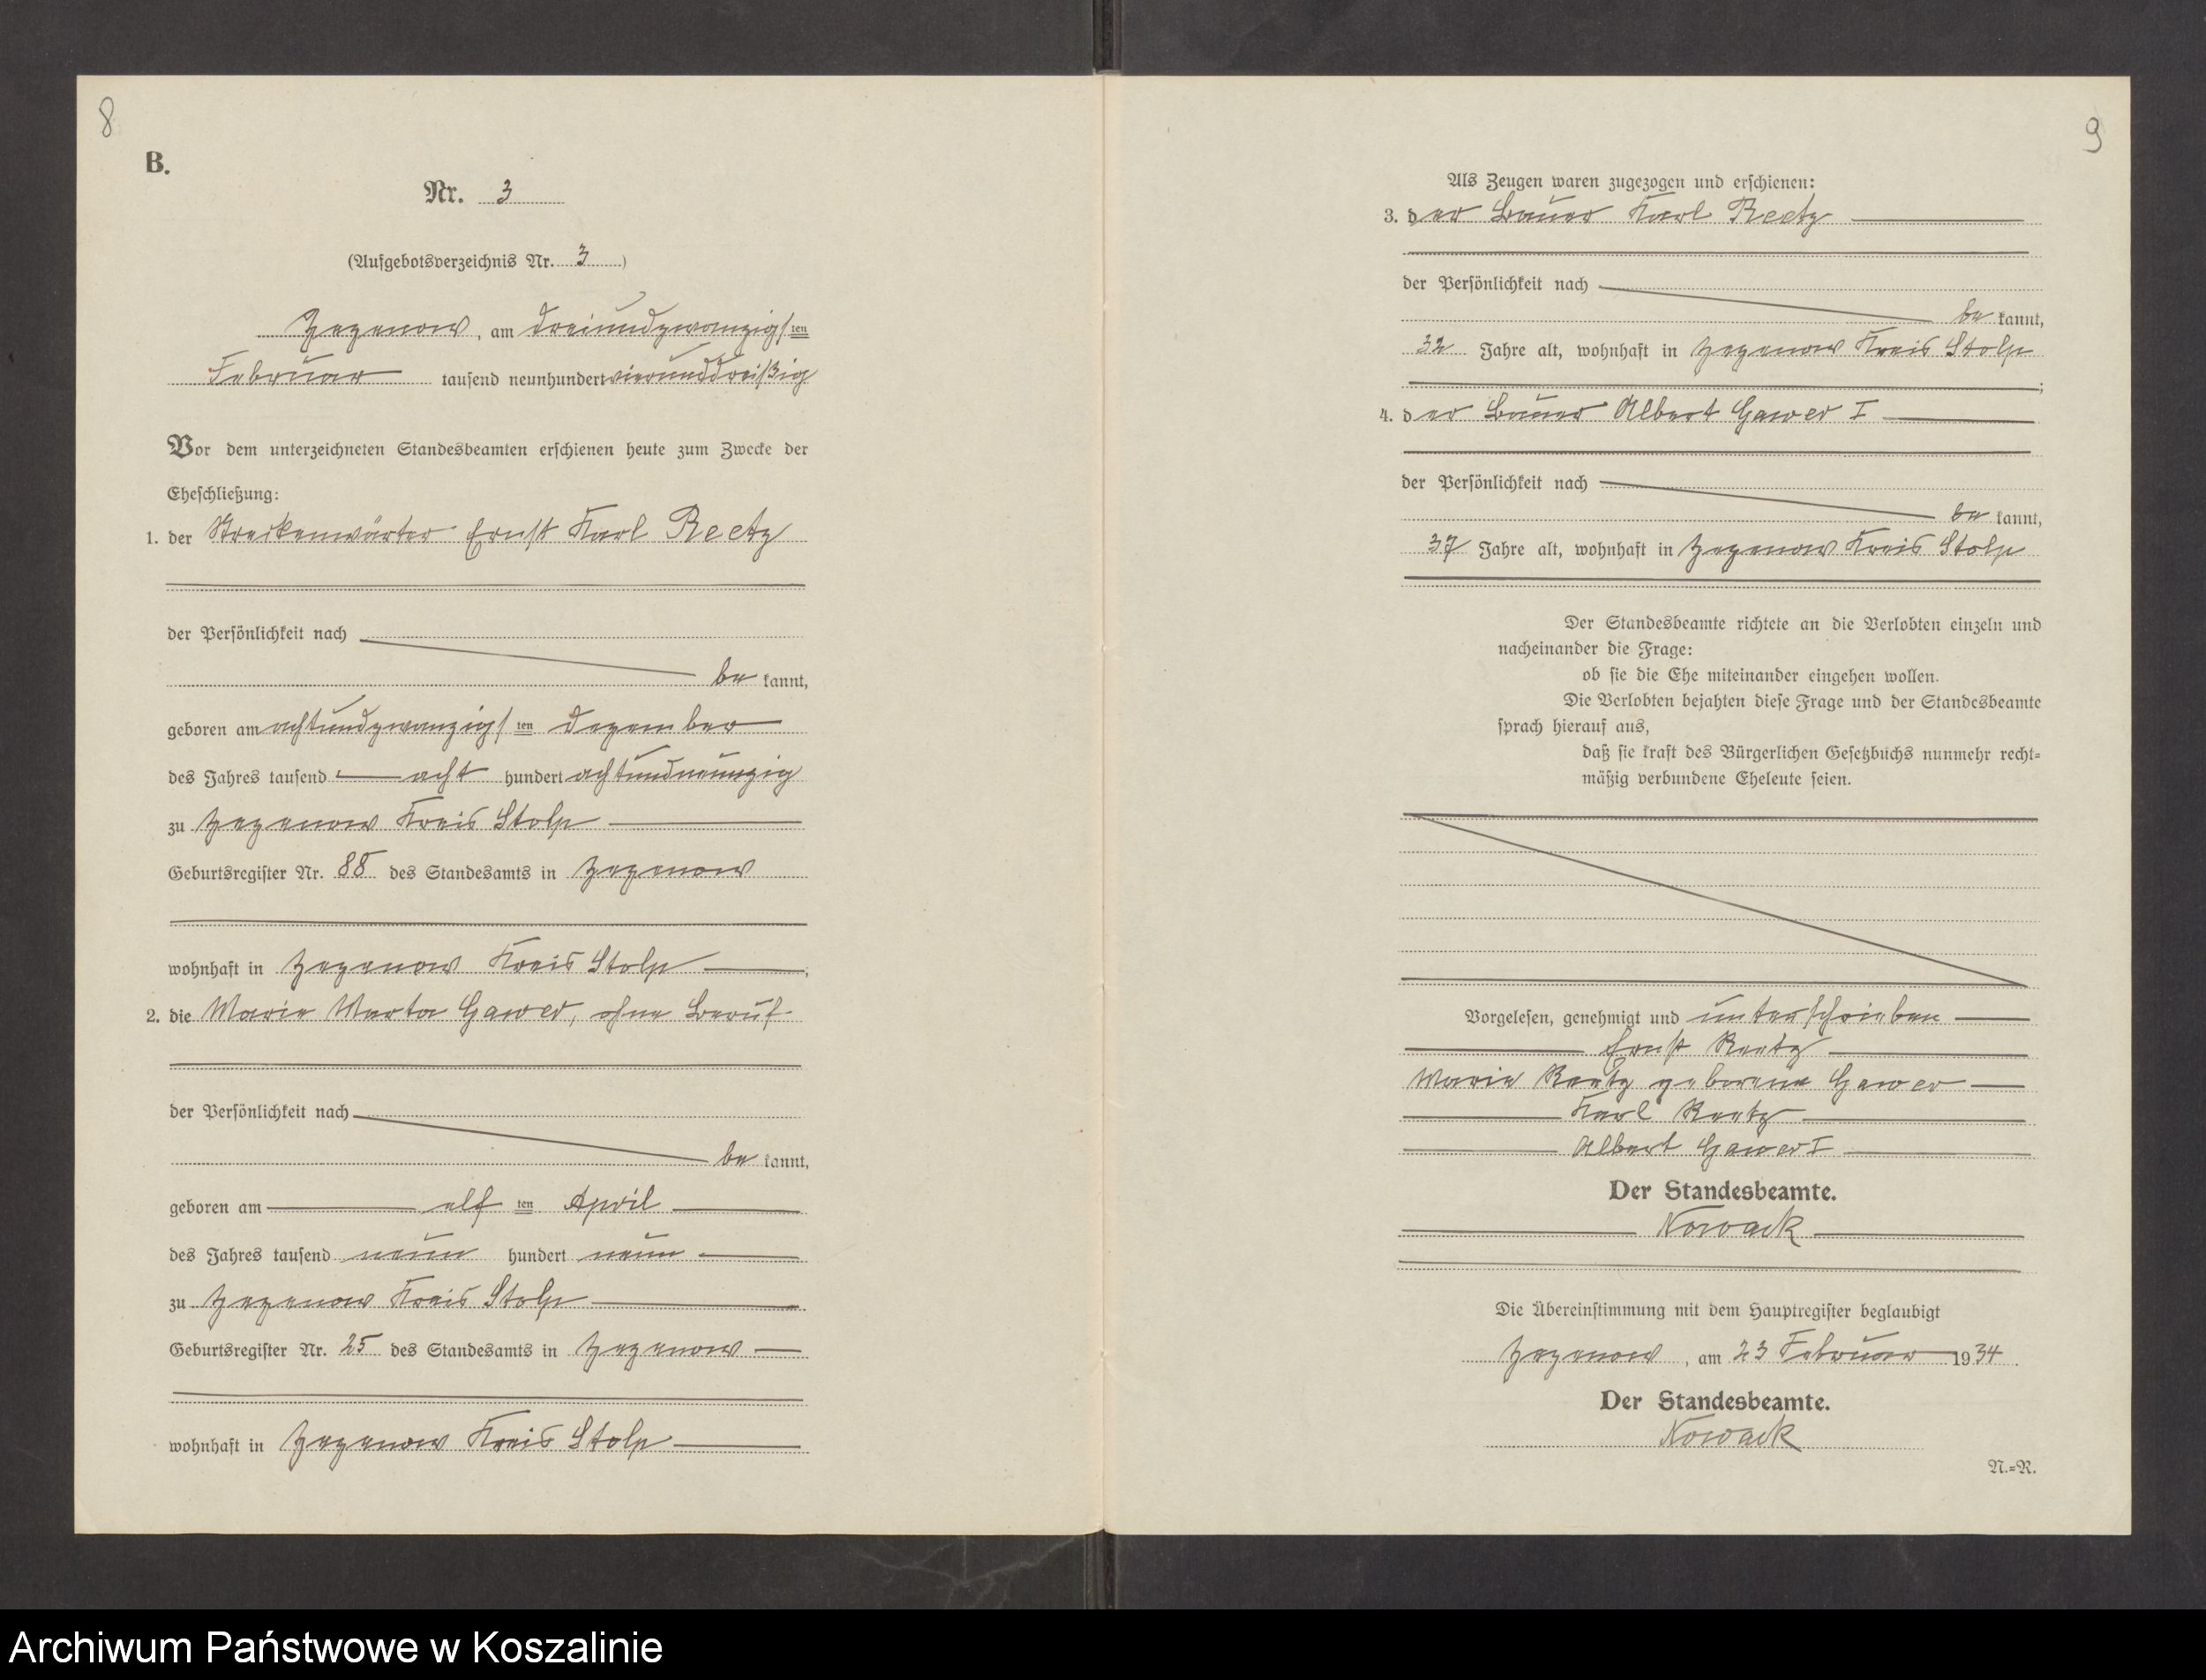 8
B.
Nr. 3
(Aufgebotsverzeichnis Nr. 3)
Zezenow, am dreiundzwanzigsten
Februar tausend neunhundert vierunddreißig
Vor dem unterzeichneten Standesbeamten erschienen heute zum Zwecke der
Eheschließung:
1. der Streckenwärter Ernst Karl Reetz
der Persönlichkeit nach
be kannt,
geboren am achtundzwanzigs ten Dezember
des Jahres tausend acht hundert achtundneunzig
zu Zezenow Kreis Stolp
Geburtsregister Nr. 88 des Standesamts in Zezenow
wohnhaft in Zezenow Kreis Stolp,
2. die Marie Marta Gawer, ohne Beruf
der Persönlichkeit nach
be kannt,
geboren am elf ten April
des Jahres tausend neun hundert neun
zu Zezenow Kreis Stolp
Geburtsregister Nr. 25 des Standesamts in Zezenow
wohnhaft in Zezenow Kreis Stolp
9
Als Zeugen waren zugezogen und erschienen:
3. der Bauer Karl Reetz
der Persönlichkeit nach
be kannt,
32 Jahre alt, wohnhaft in Zezenow Kreis Stolp
;
4. der Bauer Albert Gawer I
der Persönlichkeit nach
be kannt,
37 Jahre alt, wohnhaft in Zezenow Kreis Stolp
Der Standesbeamte richtete an die Verlobten einzeln und
nacheinander die Frage:
ob sie die Ehe miteinander eingehen wollen.
Die Verlobten bejahten diese Frage und der Standesbeamte
sprach hierauf aus,
daß sie kraft des Bürgerlichen Gesetzbuchs nunmehr recht=
mäßig verbundene Eheleute seien.
Vorgelesen, genehmigt und unterschrieben
Ernst Reetz
Marie Reetz geborene Gawer
Karl Reetz
Albert Gawer I
Der Standesbeamte.
Nowack
Die Übereinstimmung mit dem Hauptregister beglaubigt
Zezenow, am 23 Februar 1934.
Der Standesbeamte.
Nowack
N.=R.
Archiwum Państwowe w Koszalinie